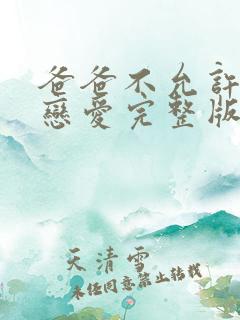 爸爸不允許
戀愛完整版
天清雪
未经同意禁止转载